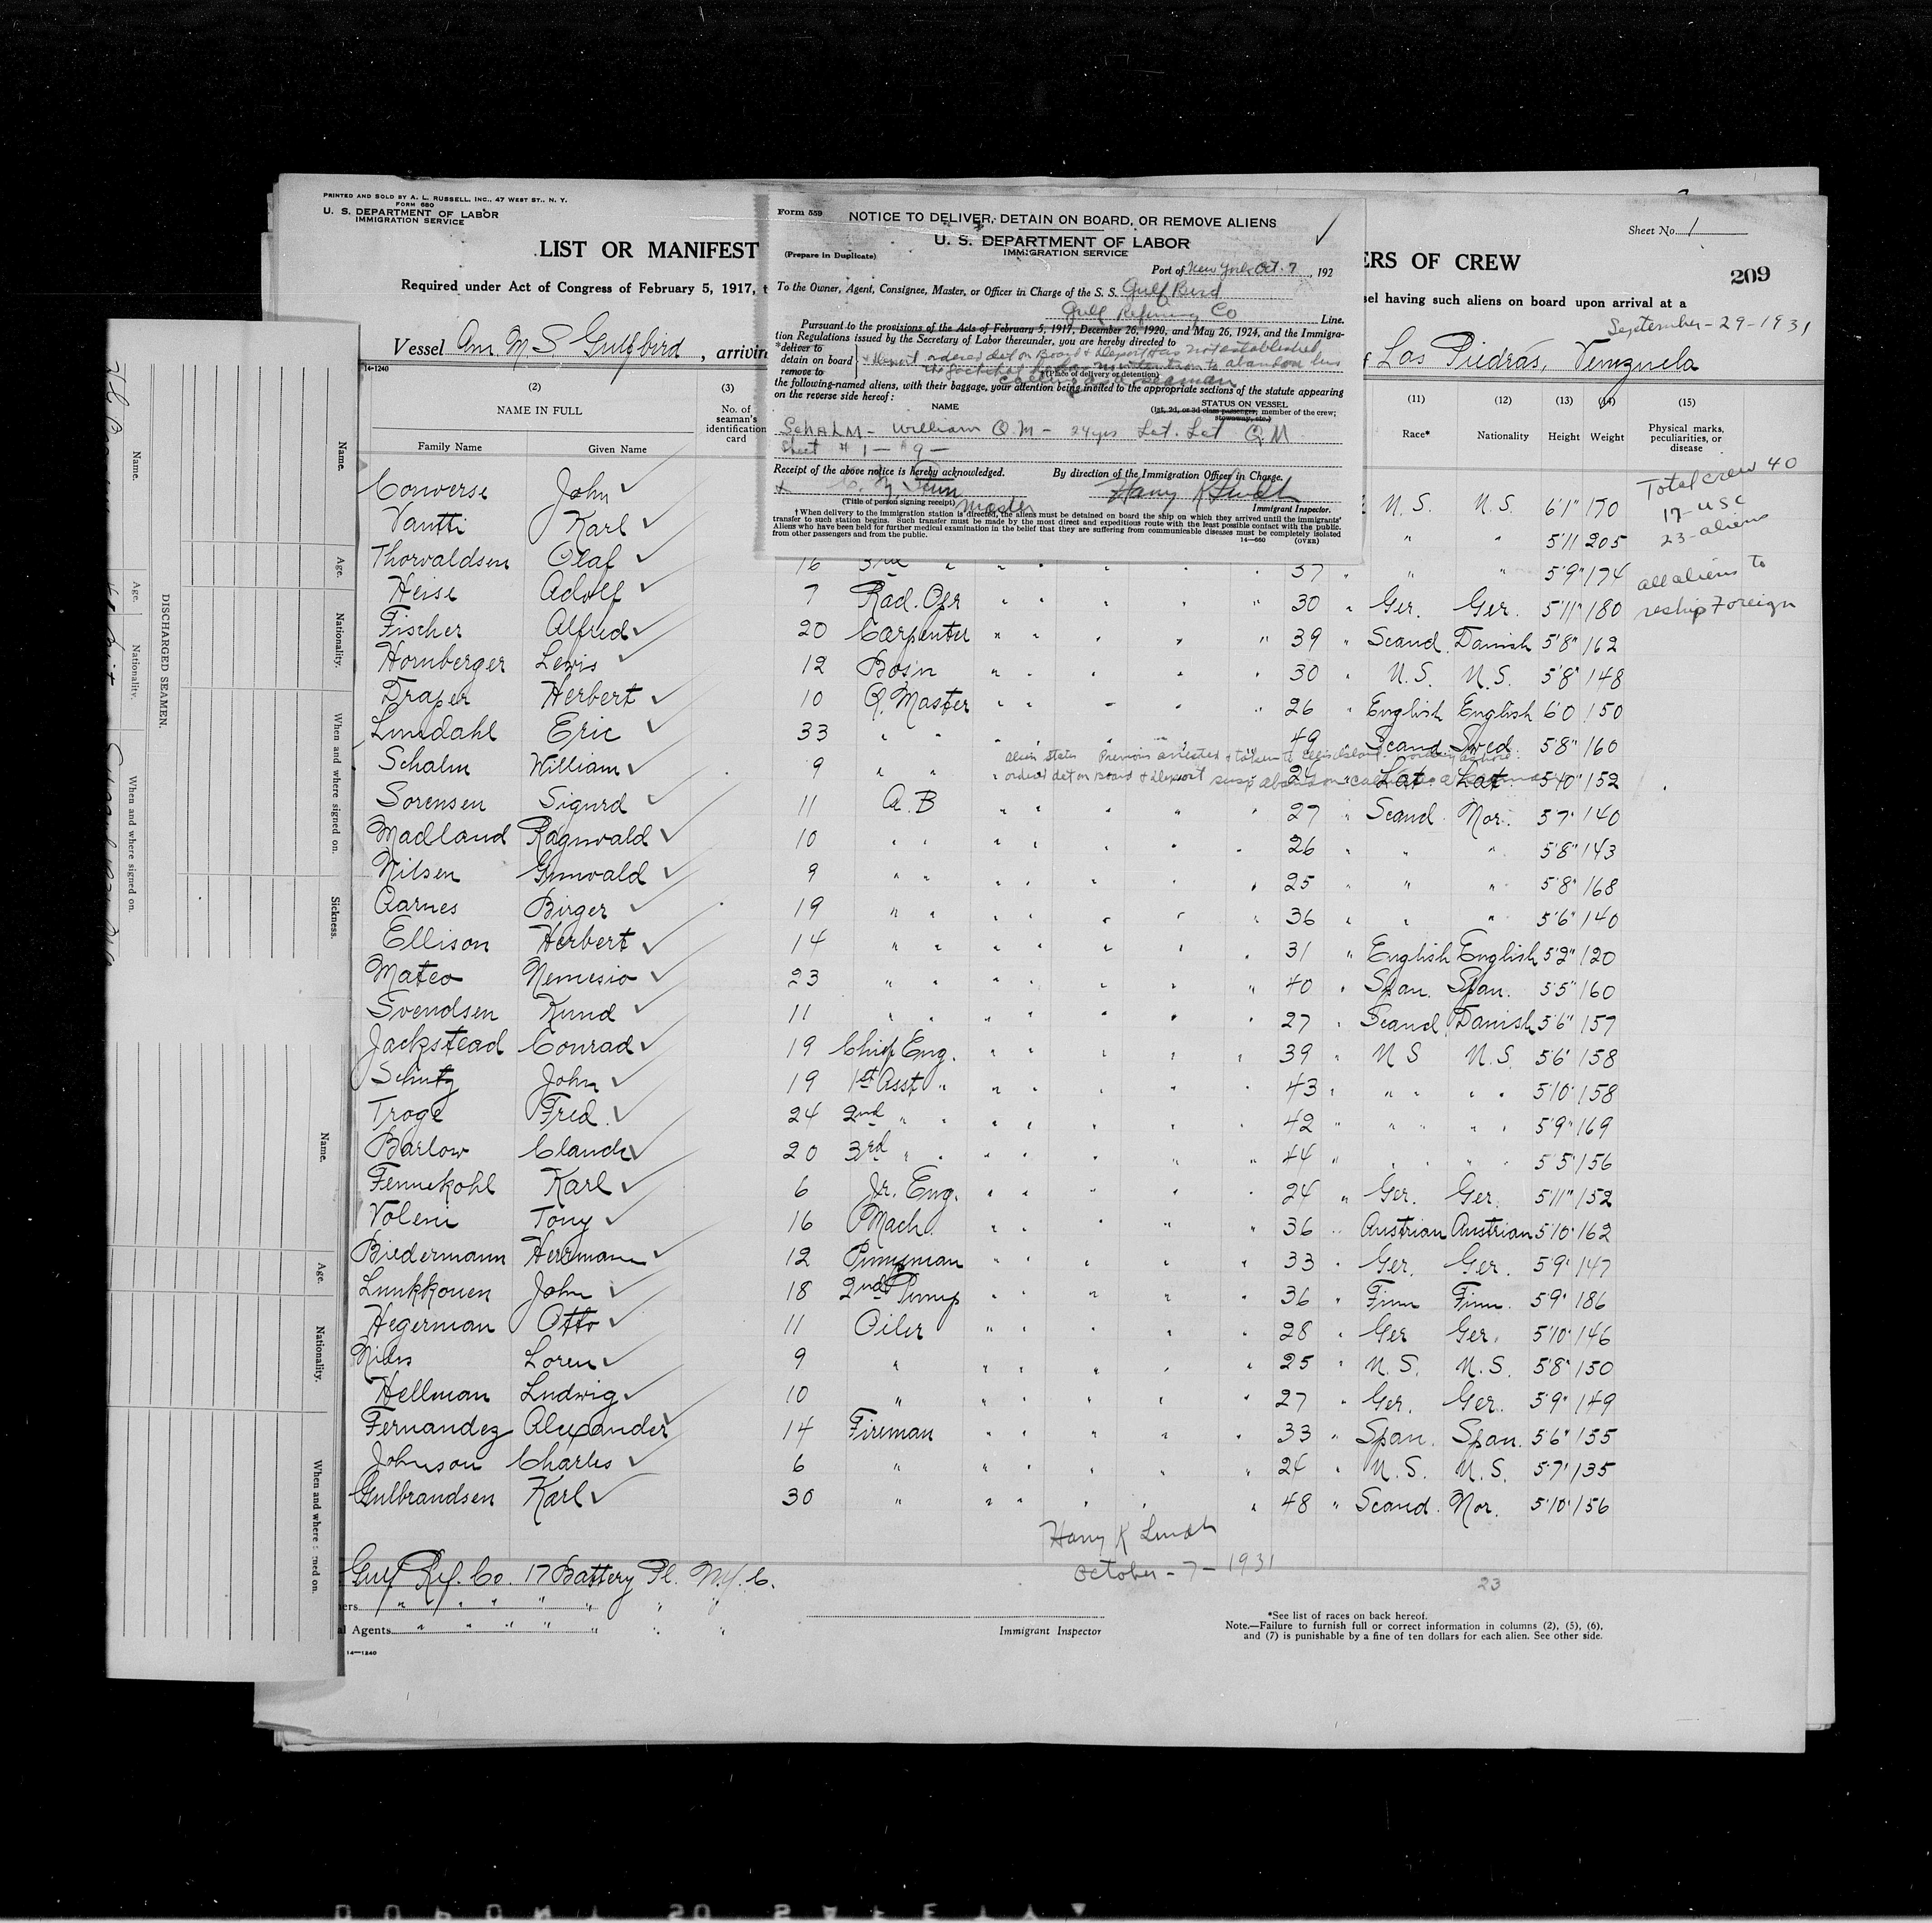 PRINTED AND SOLD BY A. L. RUSSELL, INC., 47 WEST ST., N. Y.
FORM 680
U. S. DEPARTMENT OF LABOR
IMMIGRATION SERVICE
LIST OR MANIFEST
ERS OF CREW
Sheet No. 1
209
Required under Act of Congress of February 5, 1917, t
sel having such aliens on board upon arrival at a
September-29-1931
Vessel Am. M S Gulfbird, arrivin
Las Piedras, Venezuela
Form 559
NOTICE TO DELIVER, DETAIN ON BOARD, OR REMOVE ALIENS
U. S. DEPARTMENT OF LABOR
IMMIGRATION SERVICE
(Prepare in Duplicate)
Port of New York Oct. 7, 192
To the Owner, Agent, Consignee, Master, or Officer in Charge of the S. S. Gulf Bird
Gulf Refining Co Line.
Pursuant to the provisions of the Acts of February 5, 1917, December 26, 1920, and May 26, 1924, and the Immigra-
tion Regulations issued by the Secretary of Labor thereunder, you are hereby directed to
*deliver to
detain on board
remove to
& deport ordered det on Board & deport has not established
the fact that he has no intention to abandon his
calling as a seaman
(Place of delivery or detention)
the following-named aliens, with their baggage, your attention being invited to the appropriate sections of the statute appearing
on the reverse side hereof:
NAME
STATUS ON VESSEL
(1st, 2d, or 3d class passenger, member of the crew;
stowaway, etc.)
SCHALM - William Q.M - 24 yrs Let. Let Q M
Sheet # 1 - # 9 -
Receipt of the above notice is hereby acknowledged.
By direction of the Immigration Officer in Charge.
Harry K Lindh
(Title of person signing receipt) Master
Immigrant Inspector.
† When delivery to the immigration station is directed, the aliens must be detained on board the ship on which they arrived until the immigrants'
transfer to such station begins. Such transfer must be made by the most direct and expeditious route with the least possible contact with the public.
Aliens who have been held for further medical examination in the belief that they are suffering from communicable diseases must be completely isolated
from other passengers and from the public.
14—660 (OVER)
14-1240
(2) (3) (11) (12) (13) (14) (15)
NAME IN FULL
No. of seaman's identification card
Race* Nationality Height Weight Physical marks, peculiarities, or disease
Family Name Given Name
Total crew 40
17-USC
23-aliens
all aliens to
reship Foreign
Converse John U.S. U.S. 6'1" 170
Vantti Karl " " 5'11 205
Thorvaldsen Olaf 16 3rd " 37 " " " 5'9" 174
Heise Adolf 7 Rad. Opr 30 " Ger. Ger. 5'11" 180
Fischer Alfred 20 Carpenter 39 " Scand. Danish 5'8" 162
Hornberger Lewis 12 Bosn 30 " U.S. U.S. 5'8" 148
Draper Herbert 10 Q. Master 26 " English English 6'0 150
Lindahl Eric 33 " " 49 " Scand. Swed. 5'8" 160
Schalm William 9 " " 24 " Lat. Lat. 5'10" 152
ordered det on Board & deport
Sorensen Sigurd 11 A.B 27 " Scand. Nor. 5'7" 140
Madland Ragnvald 10 " " 26 " " " 5'8" 143
Nilsen Gunvald 9 " " 25 " " " 5'8" 168
Aarnes Birger 19 " " 36 " " " 5'6" 140
Ellison Herbert 14 " " 31 " English English 5'2" 120
Mateo Nemesio 23 " " 40 " Span. Span. 5'5" 160
Svendsen Kund 11 " " 27 " Scand. Danish 5'6" 157
Jackstead Conrad 19 Chief Eng. 39 " U S U.S. 5'6" 158
Schutz John 19 1st Asst " 43 " " " 5'10" 158
Troge Fred. 24 2nd " " 42 " " " 5'9" 169
Barlow Claude 20 3rd " " 44 " " " 5'5" 156
Fennekohl Karl 6 Jr. Eng. 24 " Ger. Ger. 5'11" 152
Voleni Tony 16 Mach. 36 " Austrian Austrian 5'10" 162
Biedermann Herrmann 12 Pumpman 33 " Ger. Ger. 5'9" 147
Lunkkonen John 18 2nd Pump 36 " Finn Finn. 5'9" 186
Hegerman Otto 11 Oiler 28 " Ger Ger. 5'10" 146
Loren 9 " 25 " U.S. U.S. 5'8" 150
Hellman Ludwig 10 " 27 " Ger. Ger. 5'9" 149
Fernandez Alexander 14 Fireman 33 " Span. Span. 5'6" 155
Johnson Charles 6 " 24 " U.S. U.S. 5'7" 135
Gulbrandsen Karl 30 " 48 " Scand. Nor. 5'10" 156
Harry K Lindh
October-7-1931
Gulf Ref. Co. 17 Battery Pl. N.Y.C.
ers " " " " " " "
al Agents " " " " " " "
23
Immigrant Inspector
*See list of races on back hereof.
Note.—Failure to furnish full or correct information in columns (2), (5), (6),
and (7) is punishable by a fine of ten dollars for each alien. See other side.
14—1240
DISCHARGED SEAMEN.
Name. Age. Nationality. When and where signed on.
Name. Age. Nationality. When and where signed on. Sickness.
Name. Age. Nationality. When and where signed on.